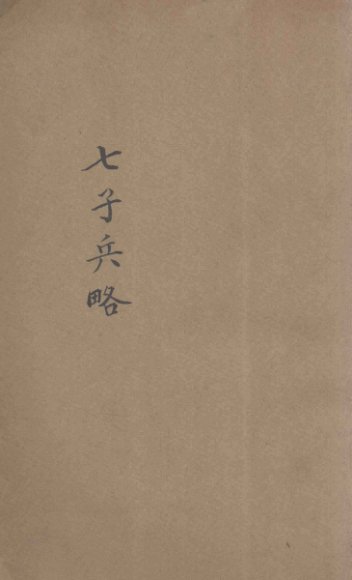 七子兵略